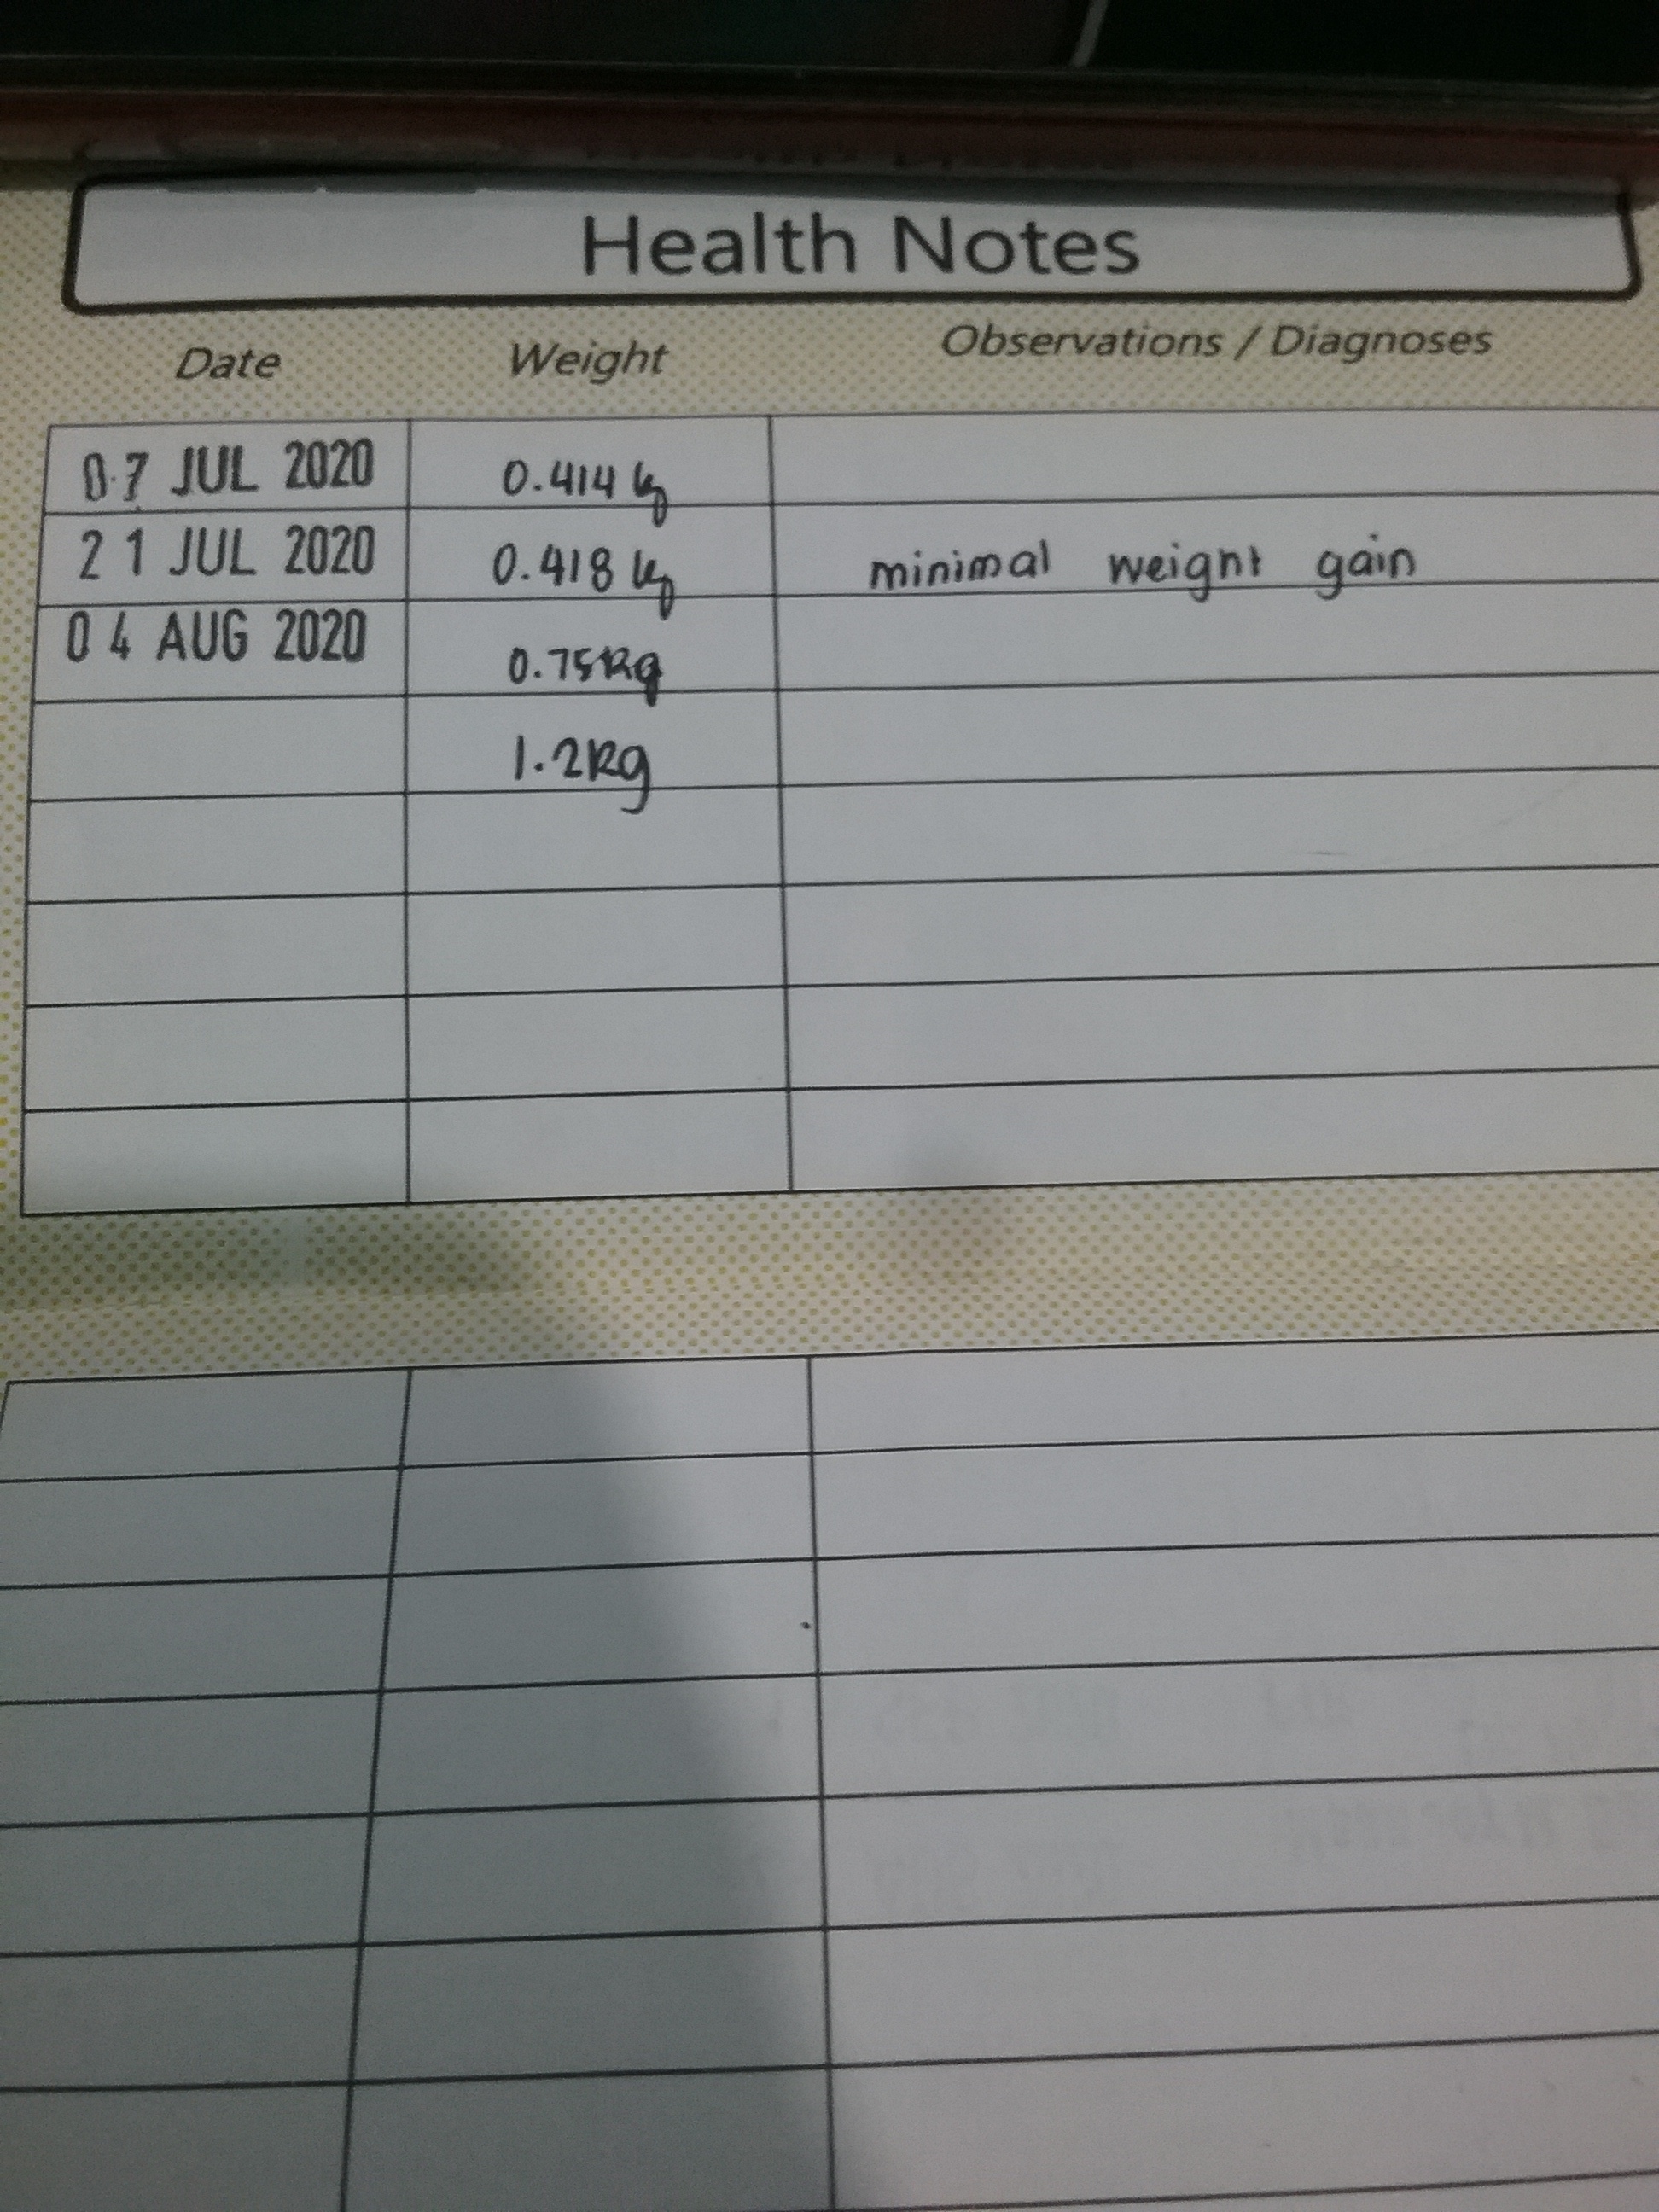 Health Notes
Date Weight Observations / Diagnoses
07 JUL 2020 0.414 kg
21 JUL 2020 0.418 kg minimal weight gain
04 AUG 2020 0.75kg
1.2kg